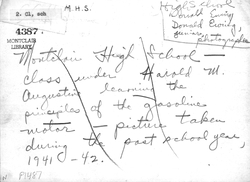 2. Cl, sch
M.H.S.
High School
Donald Ewing,
Donald Ewing,
junior,
photographer
4387.
MONTCLAIR
LIBRARY
Montclair High School
class under Harold M.
Augustine learning the
principles of the gasoline
motor picture taken
during the past school year,
1941-42.
P1487